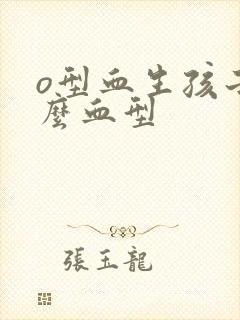 o型血生孩
麽血型
張玉龍